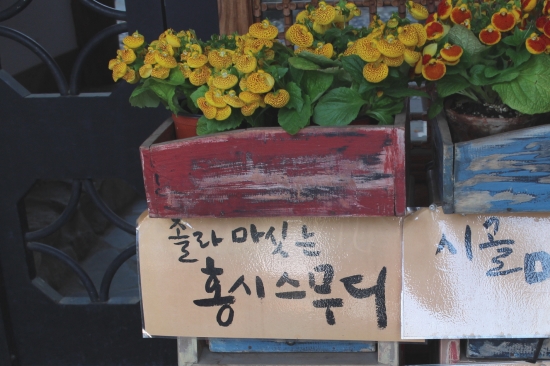 졸라 마싯는
홍시스무디
시골